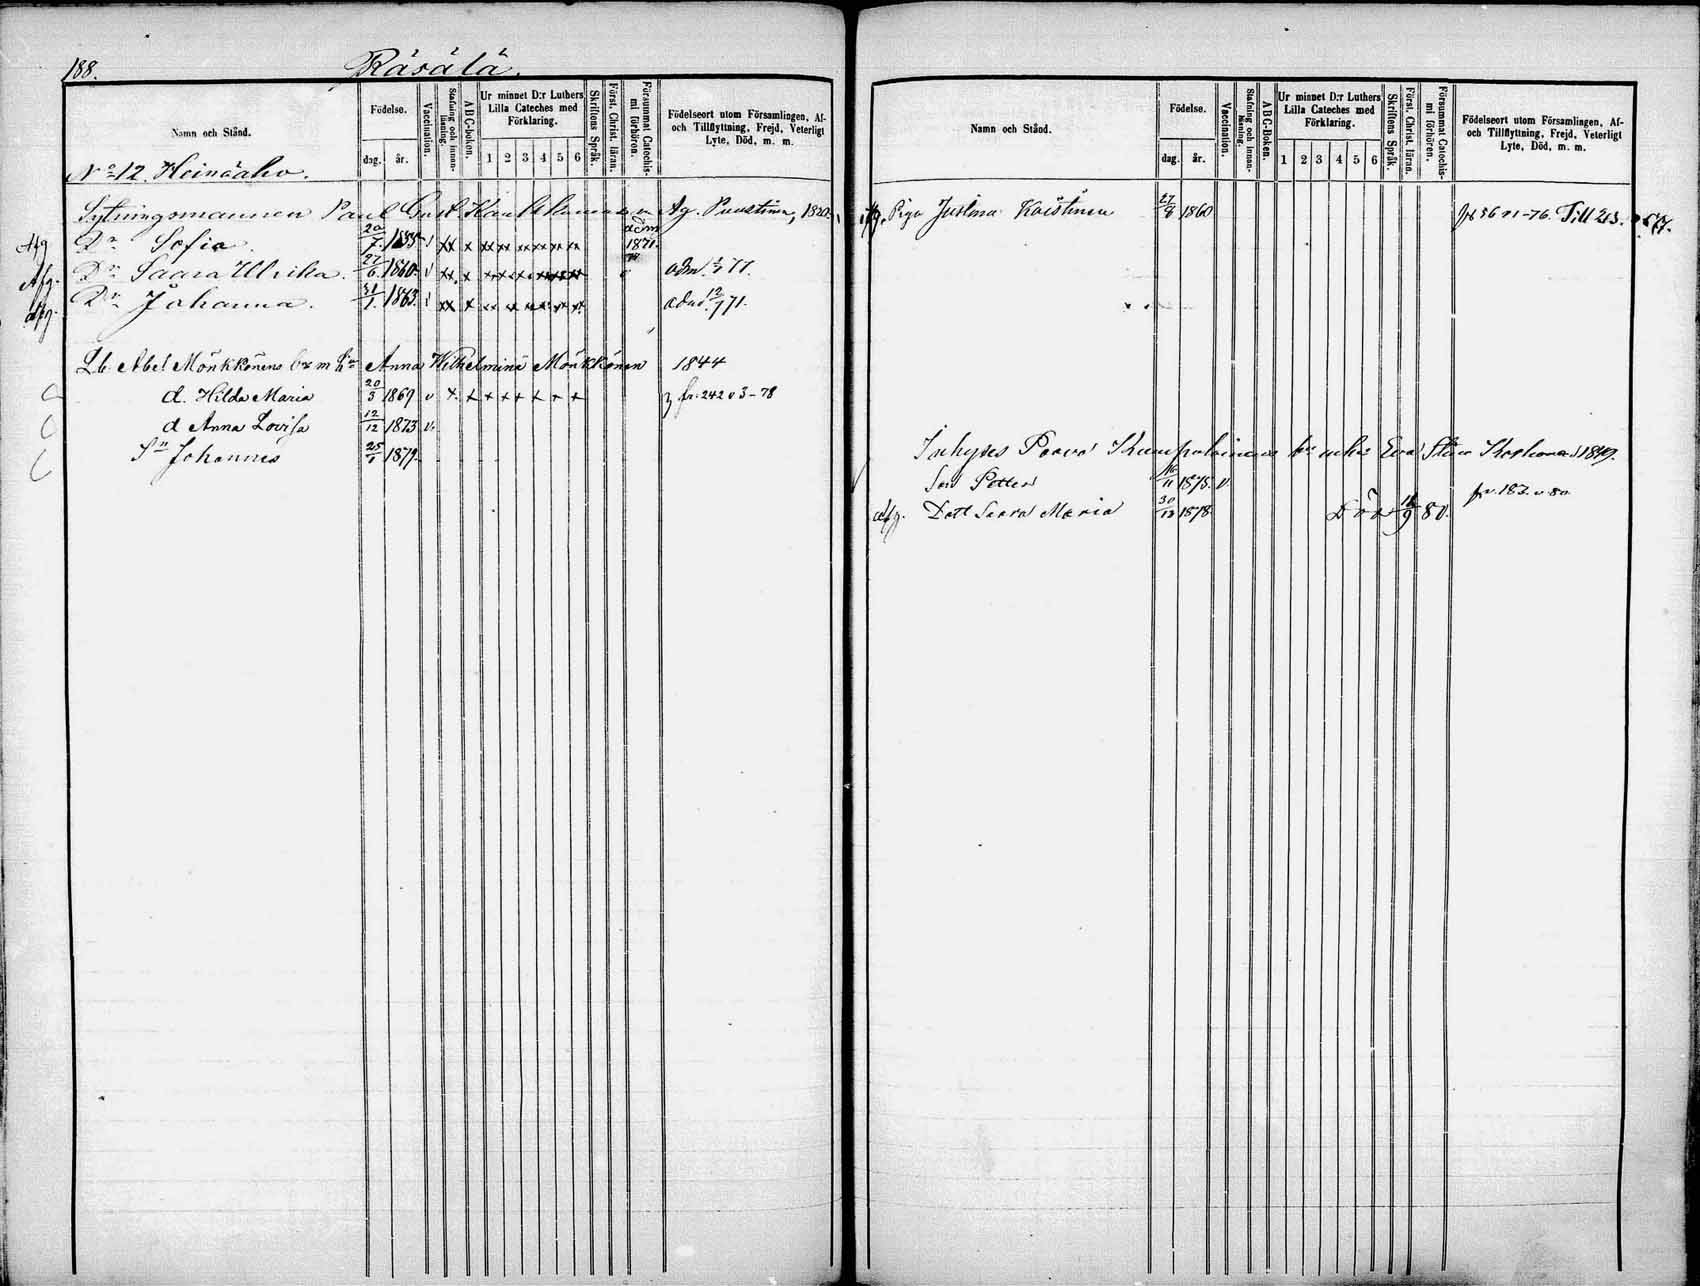 188.
Räsälä.
Namn och Stånd.
Födelse.
dag. år.
Vaccination.
Stafning och innanläsning.
ABC-boken.
Ur minnet D:r Luthers Lilla Cateches med Förklaring.
1 2 3 4 5 6
Skriftens Språk.
Först. Christ. läran.
Försummat Catechismi förhören.
Födelseort utom Församlingen, Af- och Tillflyttning, Frejd, Veterligt Lyte, Död, m. m.
No 12. Heinäaho.
Sytningsmannen Paul Gust. Ag. Puustinen, 1820.
Afg Dr Sofia 20/7. 1855 v xx x xx xx xx xx xx xx adm 1871.
Afg. Dr Saara Ulrika. 27/6. 1860. v adm. 77.
afg. Dr Johanna. 31/1. 1863. adm 12/7 71.
Lb. Abel Mönkkönens Anna Wilhelmina Mönkkönen 1844
d. Hilda Maria 20/3 1869 v x x x x x x x x fr. 242 v 3-78
d Anna Lovisa 12/12 1873 v.
Sn Johannes 25/1 1879.
Namn och Stånd.
Födelse.
dag. år.
Vaccination.
Stafning och innanläsning.
ABC-Boken.
Ur minnet D:r Luthers Lilla Cateches med Förklaring.
1 2 3 4 5 6
Skriftens Språk.
Först. Christ. läran.
Försummat Catechismi förhören.
Födelseort utom Församlingen, Af- och Tillflyttning, Frejd, Veterligt Lyte, Död, m. m.
afg. Piga Justina Kaistinen 27/8 1860 Till 213.
Inhyses Paavo Kumpulainens Eva Stina 1849.
Son Petter 16/11 1875. v fr. 183. v 80.
afg. Dott Saara Maria 30/12 1878. Död 80.